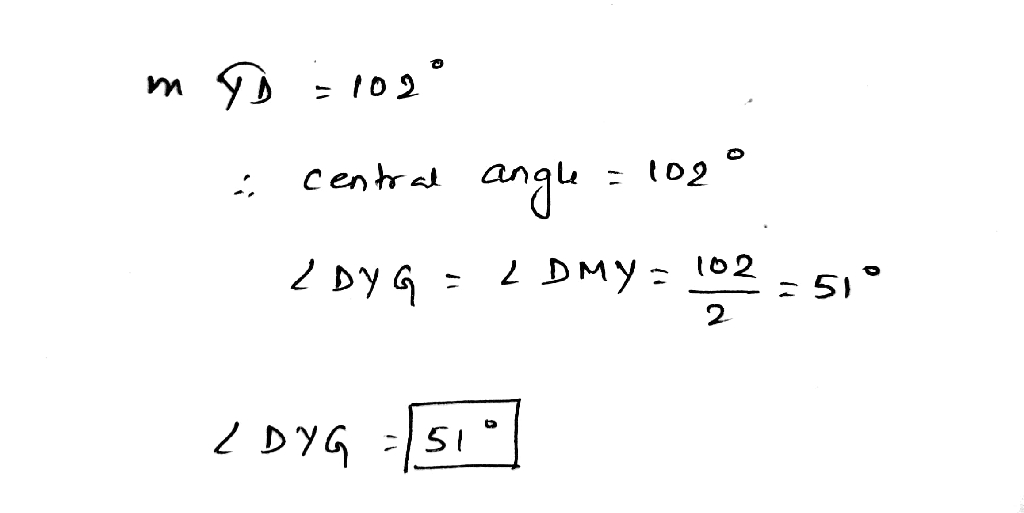 m Y͡D = 102°
∴ central angle = 102°
∠DYG = ∠DMY = 102/2 = 51°
∠DYG = 51°